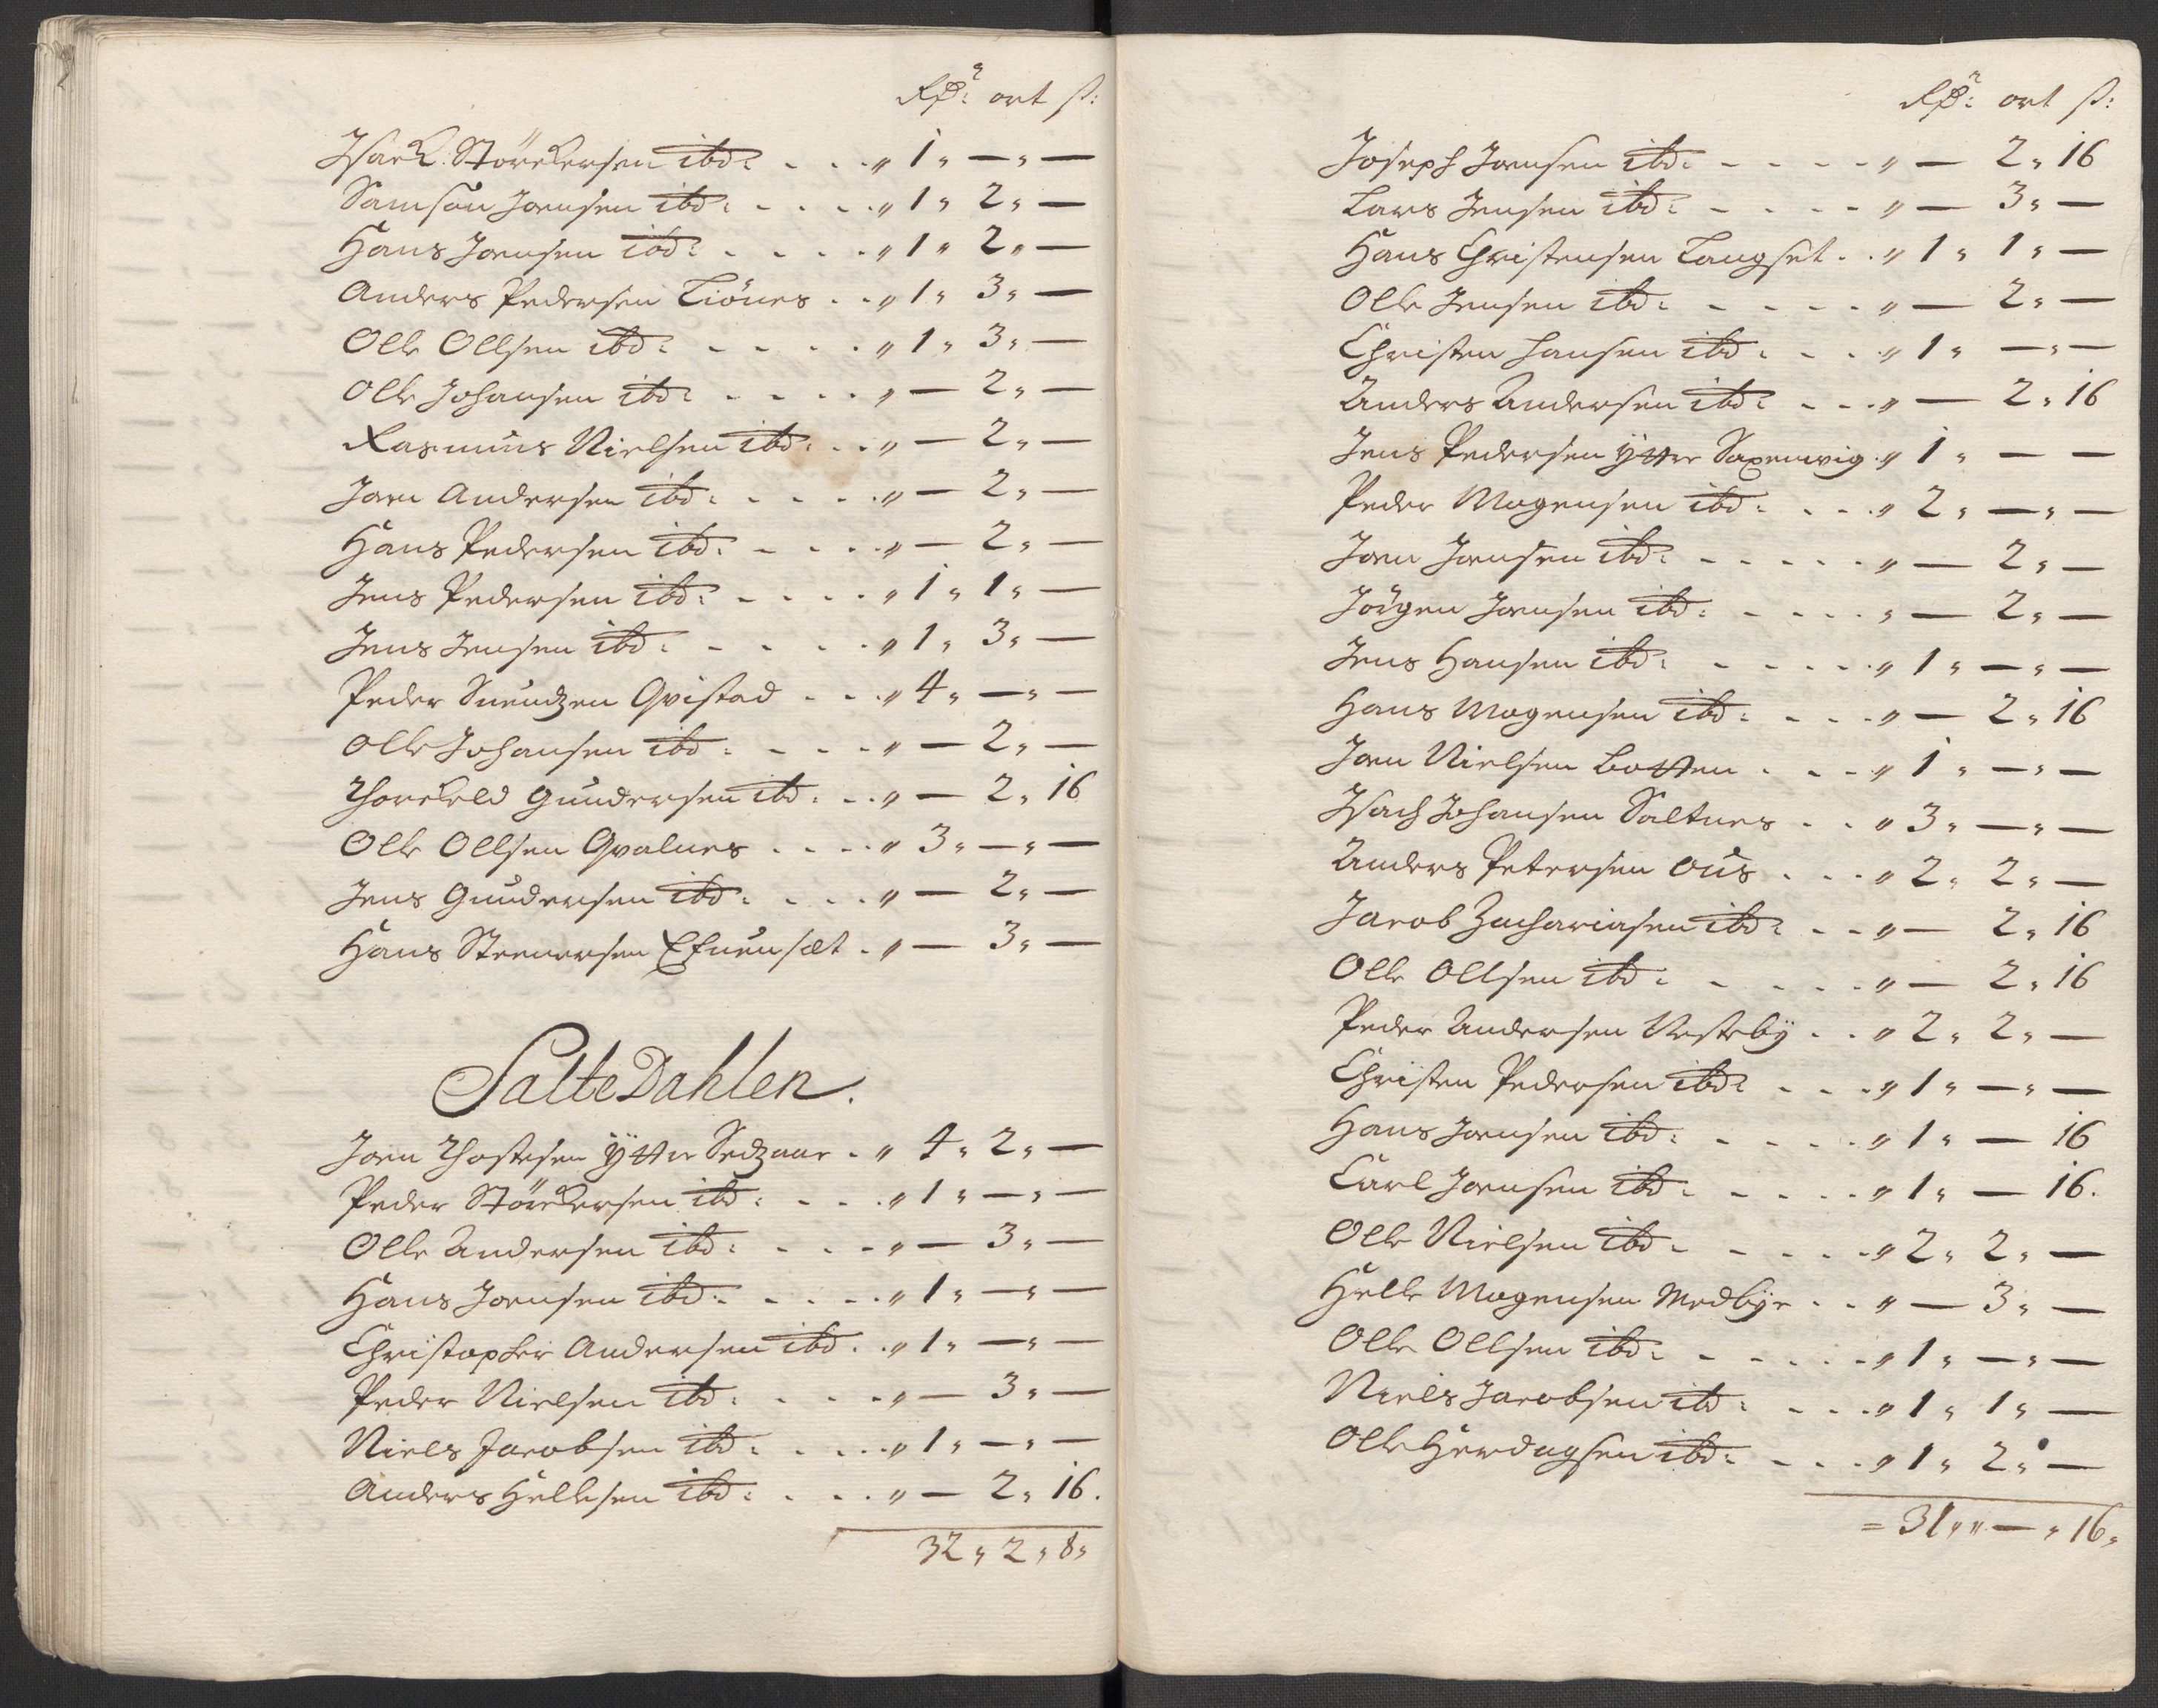 Rdr: ort s:
Isack Störckersen ibd: . . . „ 1 „ — „ —
Samson Jonsen ibd: . . . . „ 1 „ 2 „ —
Hans Jonsen ibd: . . . . „ 1 „ 2 „ —
Anders Pedersen Liönes . . „ 1 „ 3 „ —
Olle Ollsen ibd: . . . . . „ 1 „ 3 „ —
Olle Johansen ibd: . . . . „ — 2 „ —
Rasmus Nielsen ibd: . . „ — 2 „ —
Jon Andersen ibd: . . . . „ — 2 „ —
Hans Pedersen ibd: . . . . „ — 2 „ —
Jens Pedersen ibd: . . . . „ 1 „ 1 „ —
Jens Jensen ibd: . . . . . „ 1 „ 3 „ —
Peder Suendzen Qvistad . . . „ 4 „ — „ —
Olle Johansen ibd: . . . . „ — 2 „ —
Thorckeld Gundersen ibd: . . „ — 2 „ 16
Olle Ollsen Qvalnes . . . . „ 3 „ — „ —
Jens Gundersen ibd: . . . . „ — 2 „ —
Hans Steenersen Efuensæt . „ — 3 „ —
SalteDahlen.
Jon Thostesen ÿtter . „ 4 „ 2 „ —
Peder Störckersen ibd: . . . „ 1 „ — „ —
Olle Andersen ibd: . . . . „ — 3 „ —
Hans Jonsen ibd: . . . . . „ 1 „ — „ —
Christopher Andersen ibd: . „ 1 „ — „ —
Peder Nielsen ibd: . . . . „ — 3 „ —
Niels Jacobsen ibd: . . . . „ 1 „ — „ —
Anders Hellesen ibd: . . . . „ — 2 „ 16.
32 „ 2 „ 8 „
Rdr: ort s:
Joseph Jonsen ibd: . . . . . „ — 2 „ 16
Lars Jensen ibd: . . . . . „ — 3 „ —
Hans Christensen Langset . . „ 1 „ 1 „ —
Olle Jensen ibd: . . . . . „ — 2 „ —
Christen Hansen ibd: . . . „ 1 „ — „ —
Anders Andersen ibd: . . . „ — 2 „ 16
Jens Pedersen ÿtter Saxenvig . „ 1 „ — —
Peder Mogensen ibd: . . . „ 2 „ — „ —
Jon Jonsen ibd: . . . . . „ — 2 „ —
Jörgen Jonsen ibd: . . . . „ — 2 „ —
Jens Hansen ibd: . . . . . „ 1 „ — „ —
Hans Mogensen ibd: . . . . „ — 2 „ 16
Jon Nielsen Botten . . . „ 1 „ — „ —
Isach Johansen Saltnes . . „ 3 „ — „ —
Anders Petersen Ous . . . „ 2 „ 2 „ —
Jacob Zachariasen ibd: . . „ — 2 „ 16
Olle Ollsen ibd: . . . . . „ — 2 „ 16
Peder Andersen Vestebÿ . . „ 2 „ 2 „ —
Christen Pedersen ibd: . . . „ 1 „ — „ —
Hans Jonsen ibd: . . . . . „ 1 „ — 16
Carl Jonsen ibd: . . . . . „ 1 „ — 16.
Olle Nielsen ibd: . . . . . „ 2 „ 2 „ —
Helle Mogensen Medbÿe . . „ — 3 „ —
Olle Ollsen ibd: . . . . . „ 1 „ — „ —
Niels Jacobsen ibd: . . . . „ 1 „ 1 „ —
Olle Herdagsen ibd: . . . . „ 1 „ 2 „ —
= 31 „ „ — „ 16 „